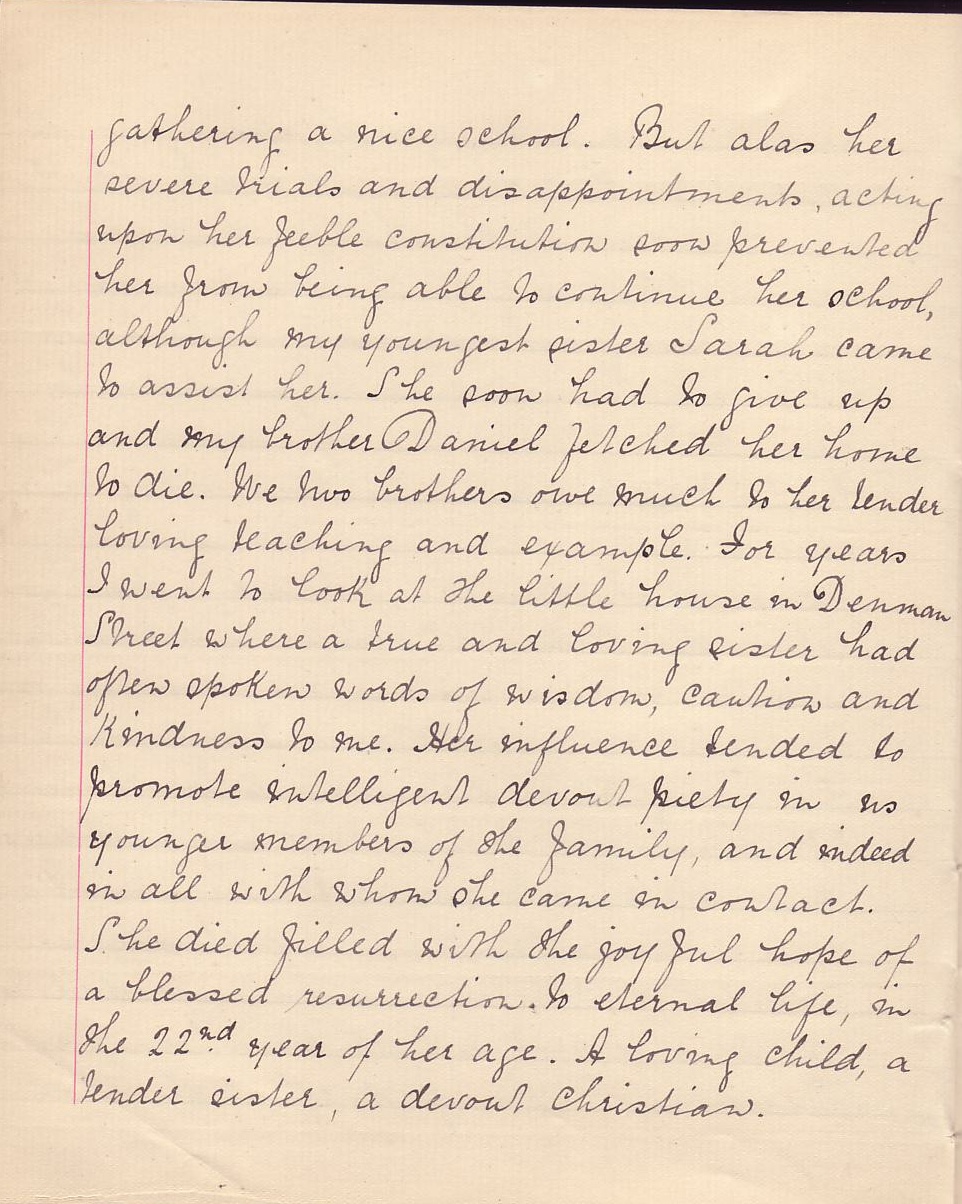 gathering a nice school. But alas her
severe trials and disappointments, acting
upon her feeble constitution soon prevented
her from being able to continue her school,
although my youngest sister Sarah came
to assist her. She soon had to give up
and my brother Daniel fetched her home
to die. We two brothers owe much to her tender
loving teaching and example. For years
I went to look at the little house in Denman
Street where a true and loving sister had
often spoken words of wisdom, caution and
Kindness to me. Her influence tended to
promote intelligent devout piety in us
younger members of the family, and indeed
in all with whom she came in contact.
She died filled with the joyful hope of
a blessed resurrection. to eternal life, in
the 22nd year of her age. A loving child, a
tender sister, a devout Christian.